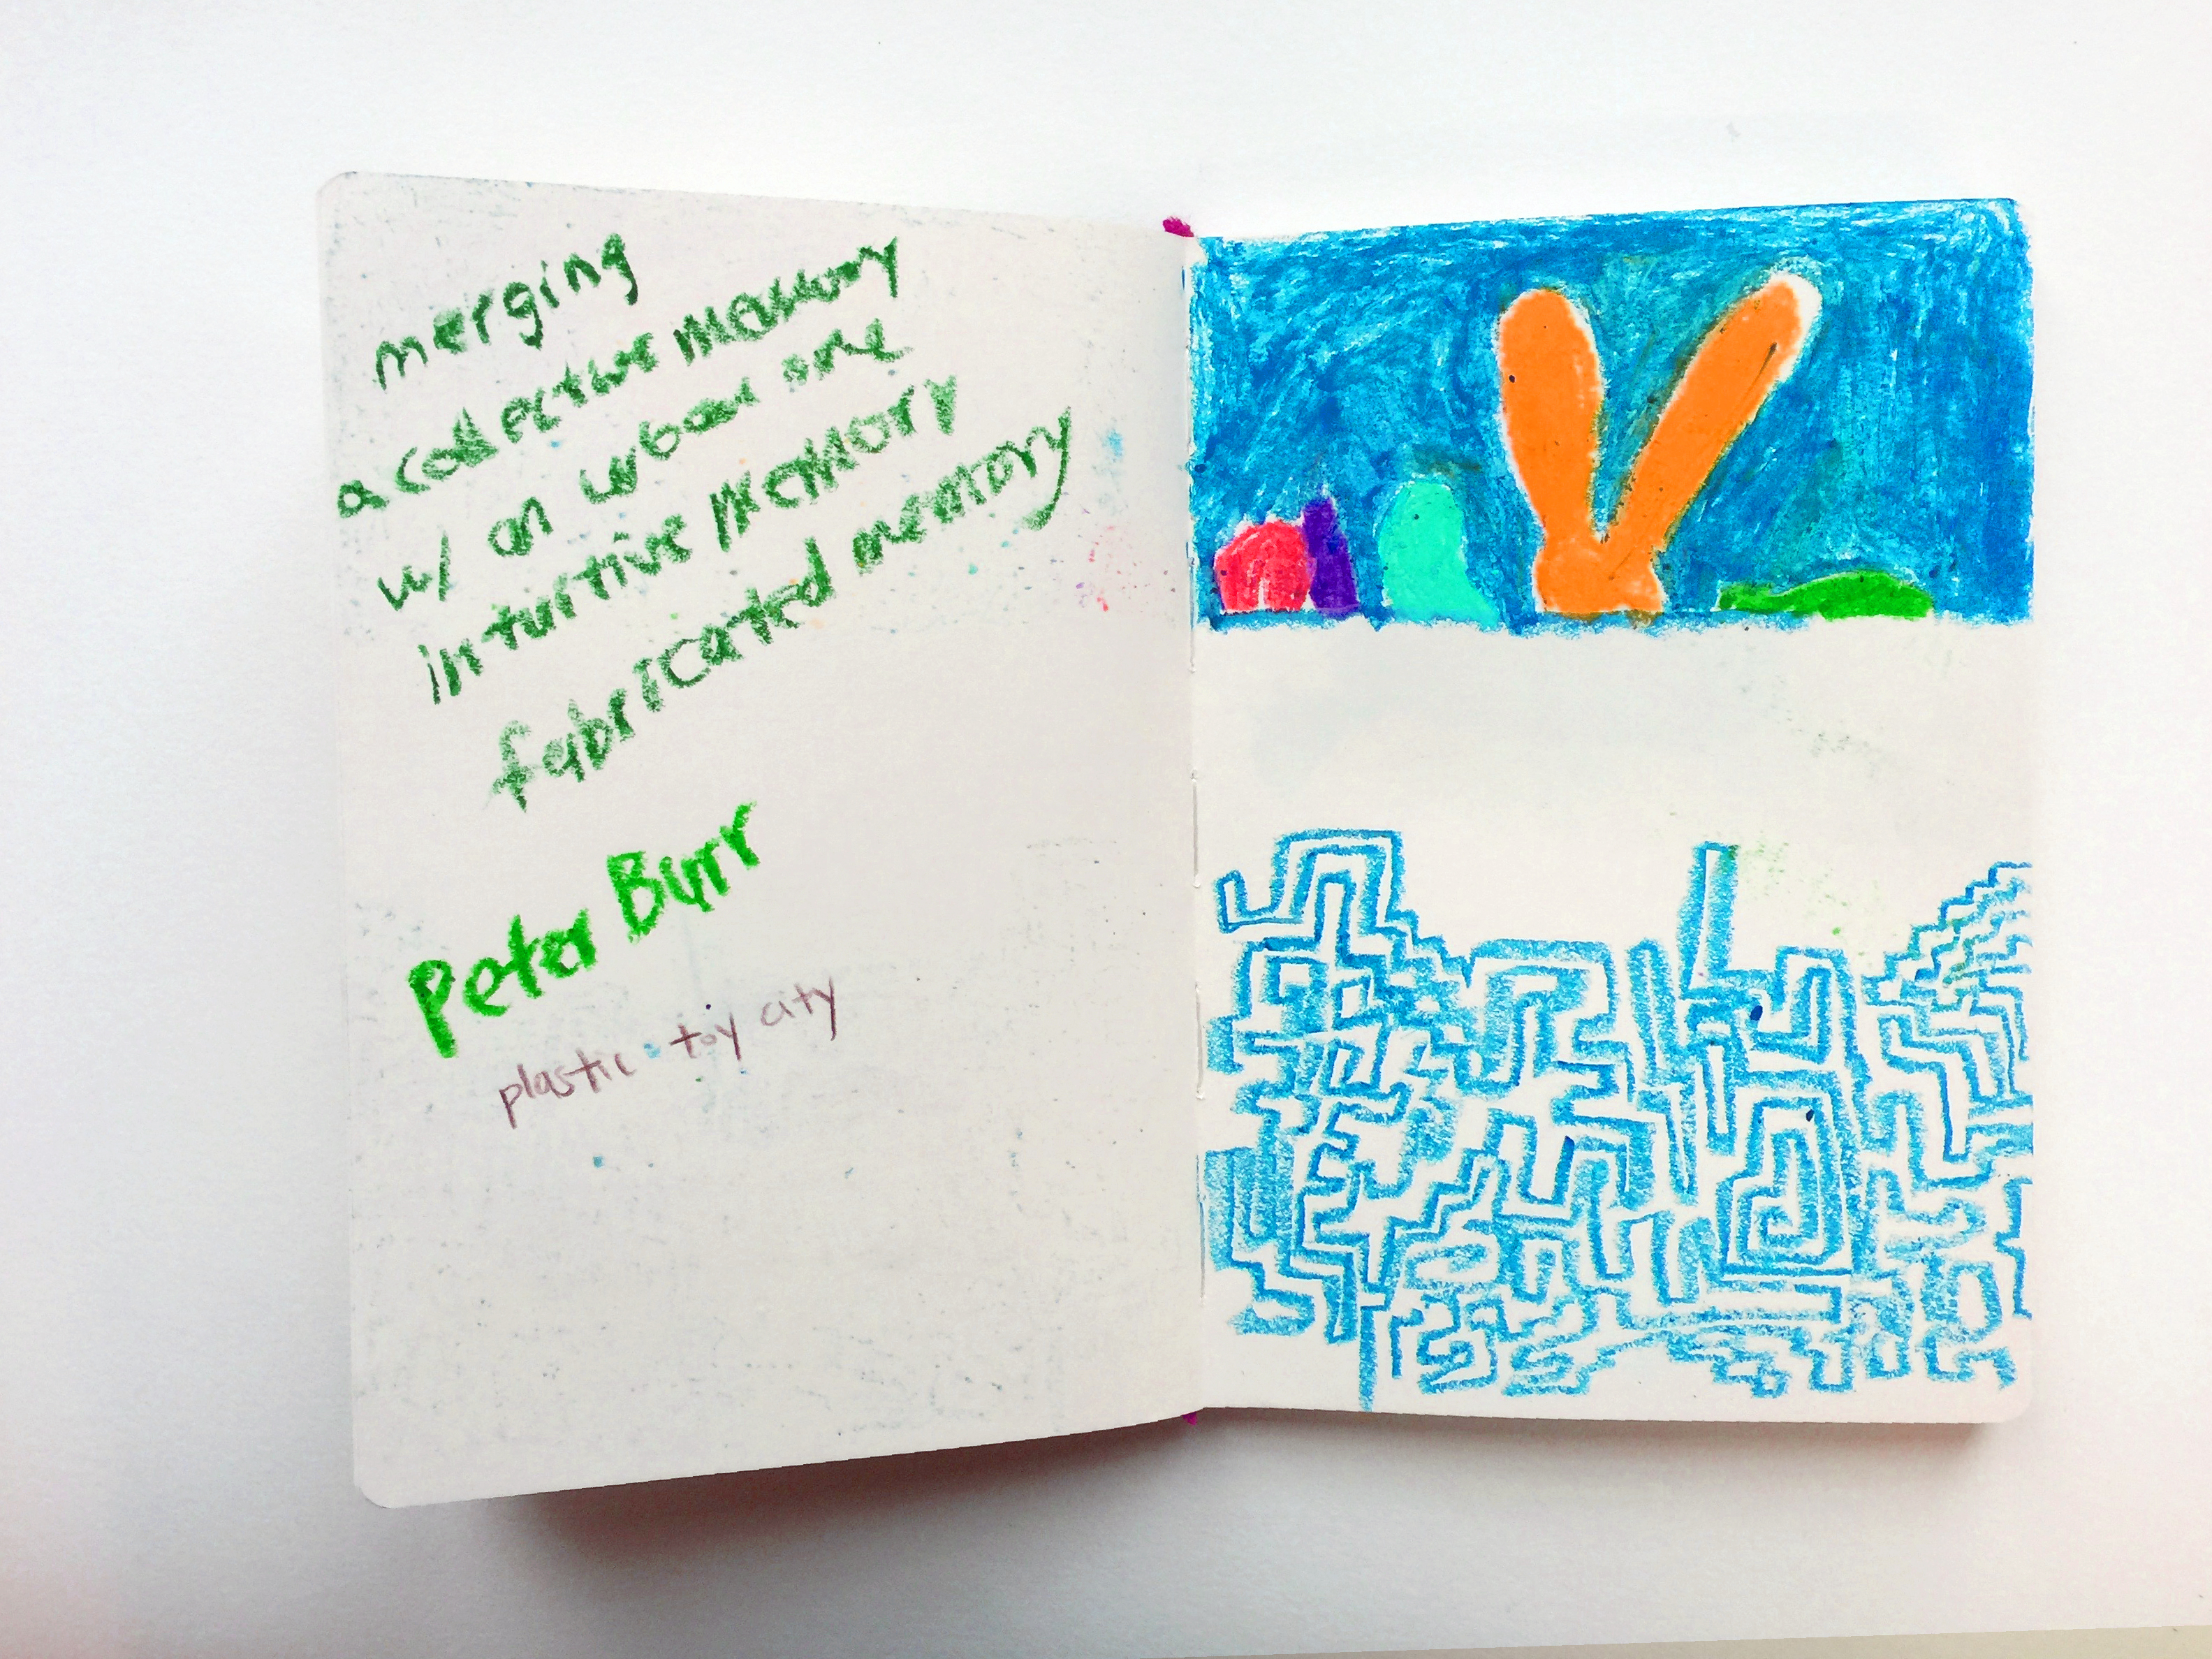 merging
a collective memory
w/ an urban one
inturtive memory
fabricated memory
Peter Burr
plastic toy city